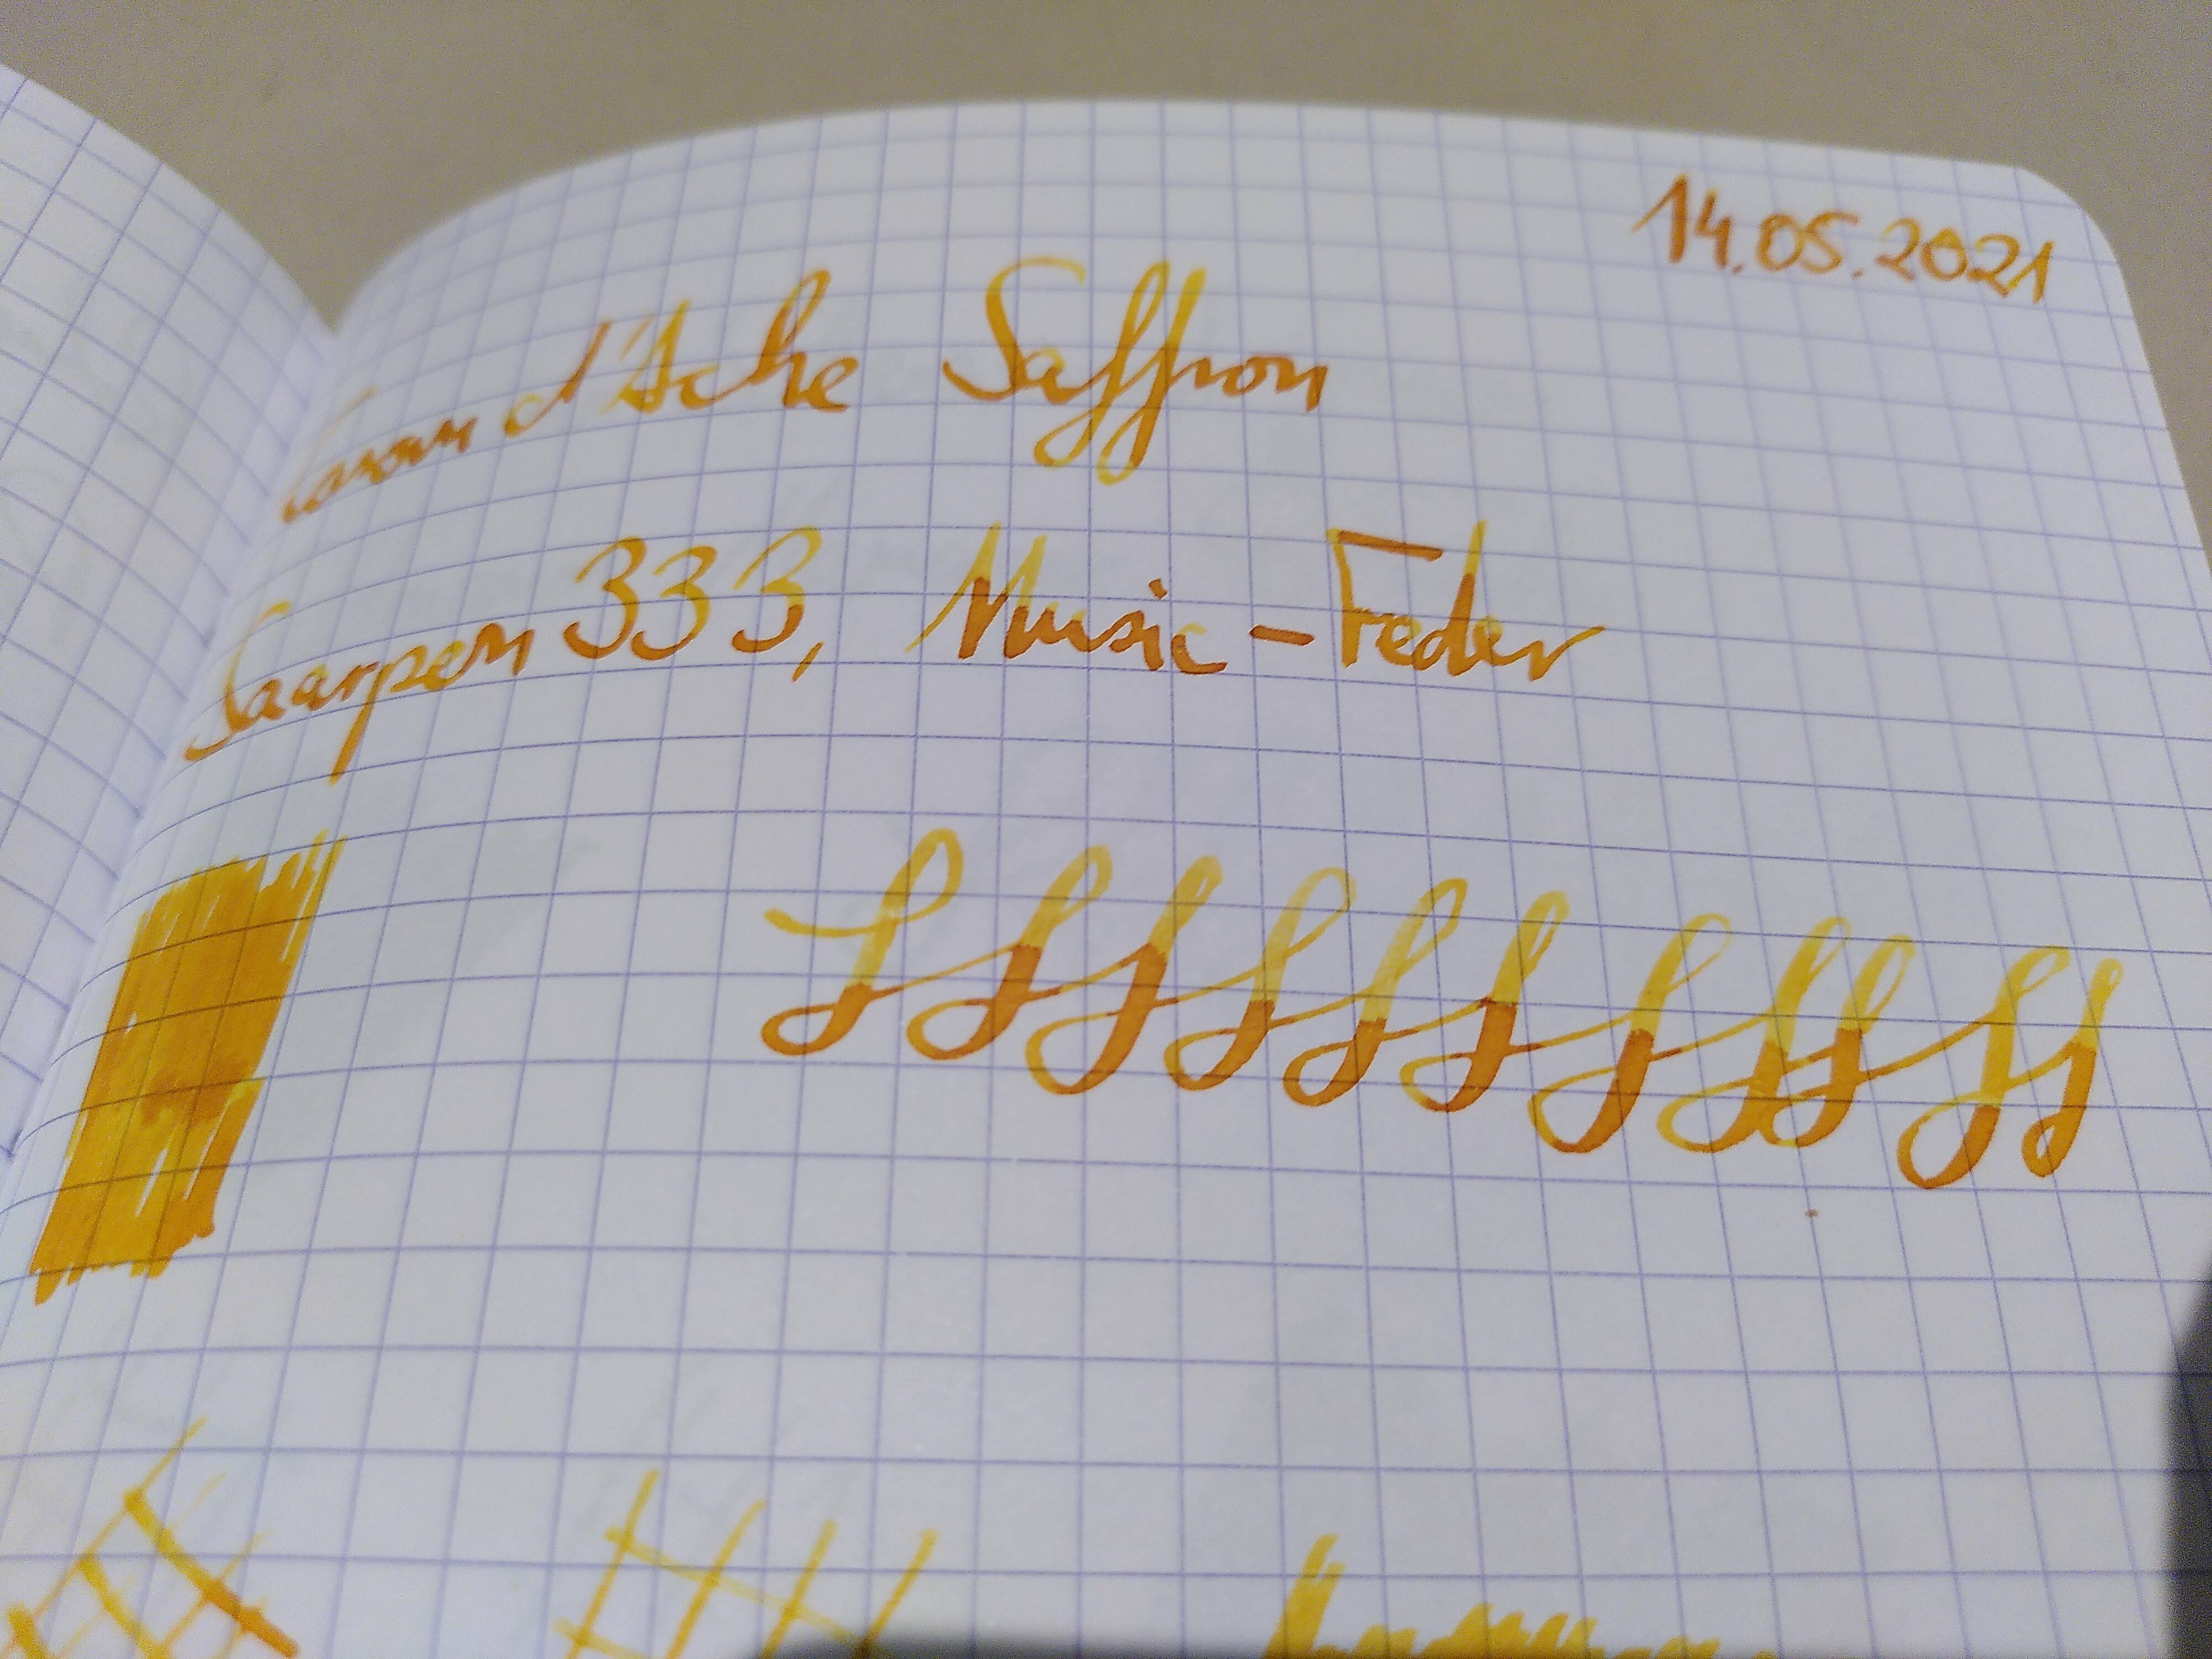 14.05.2021
Caran d'Ache Saffron
Saarpen 333, Music-Feder